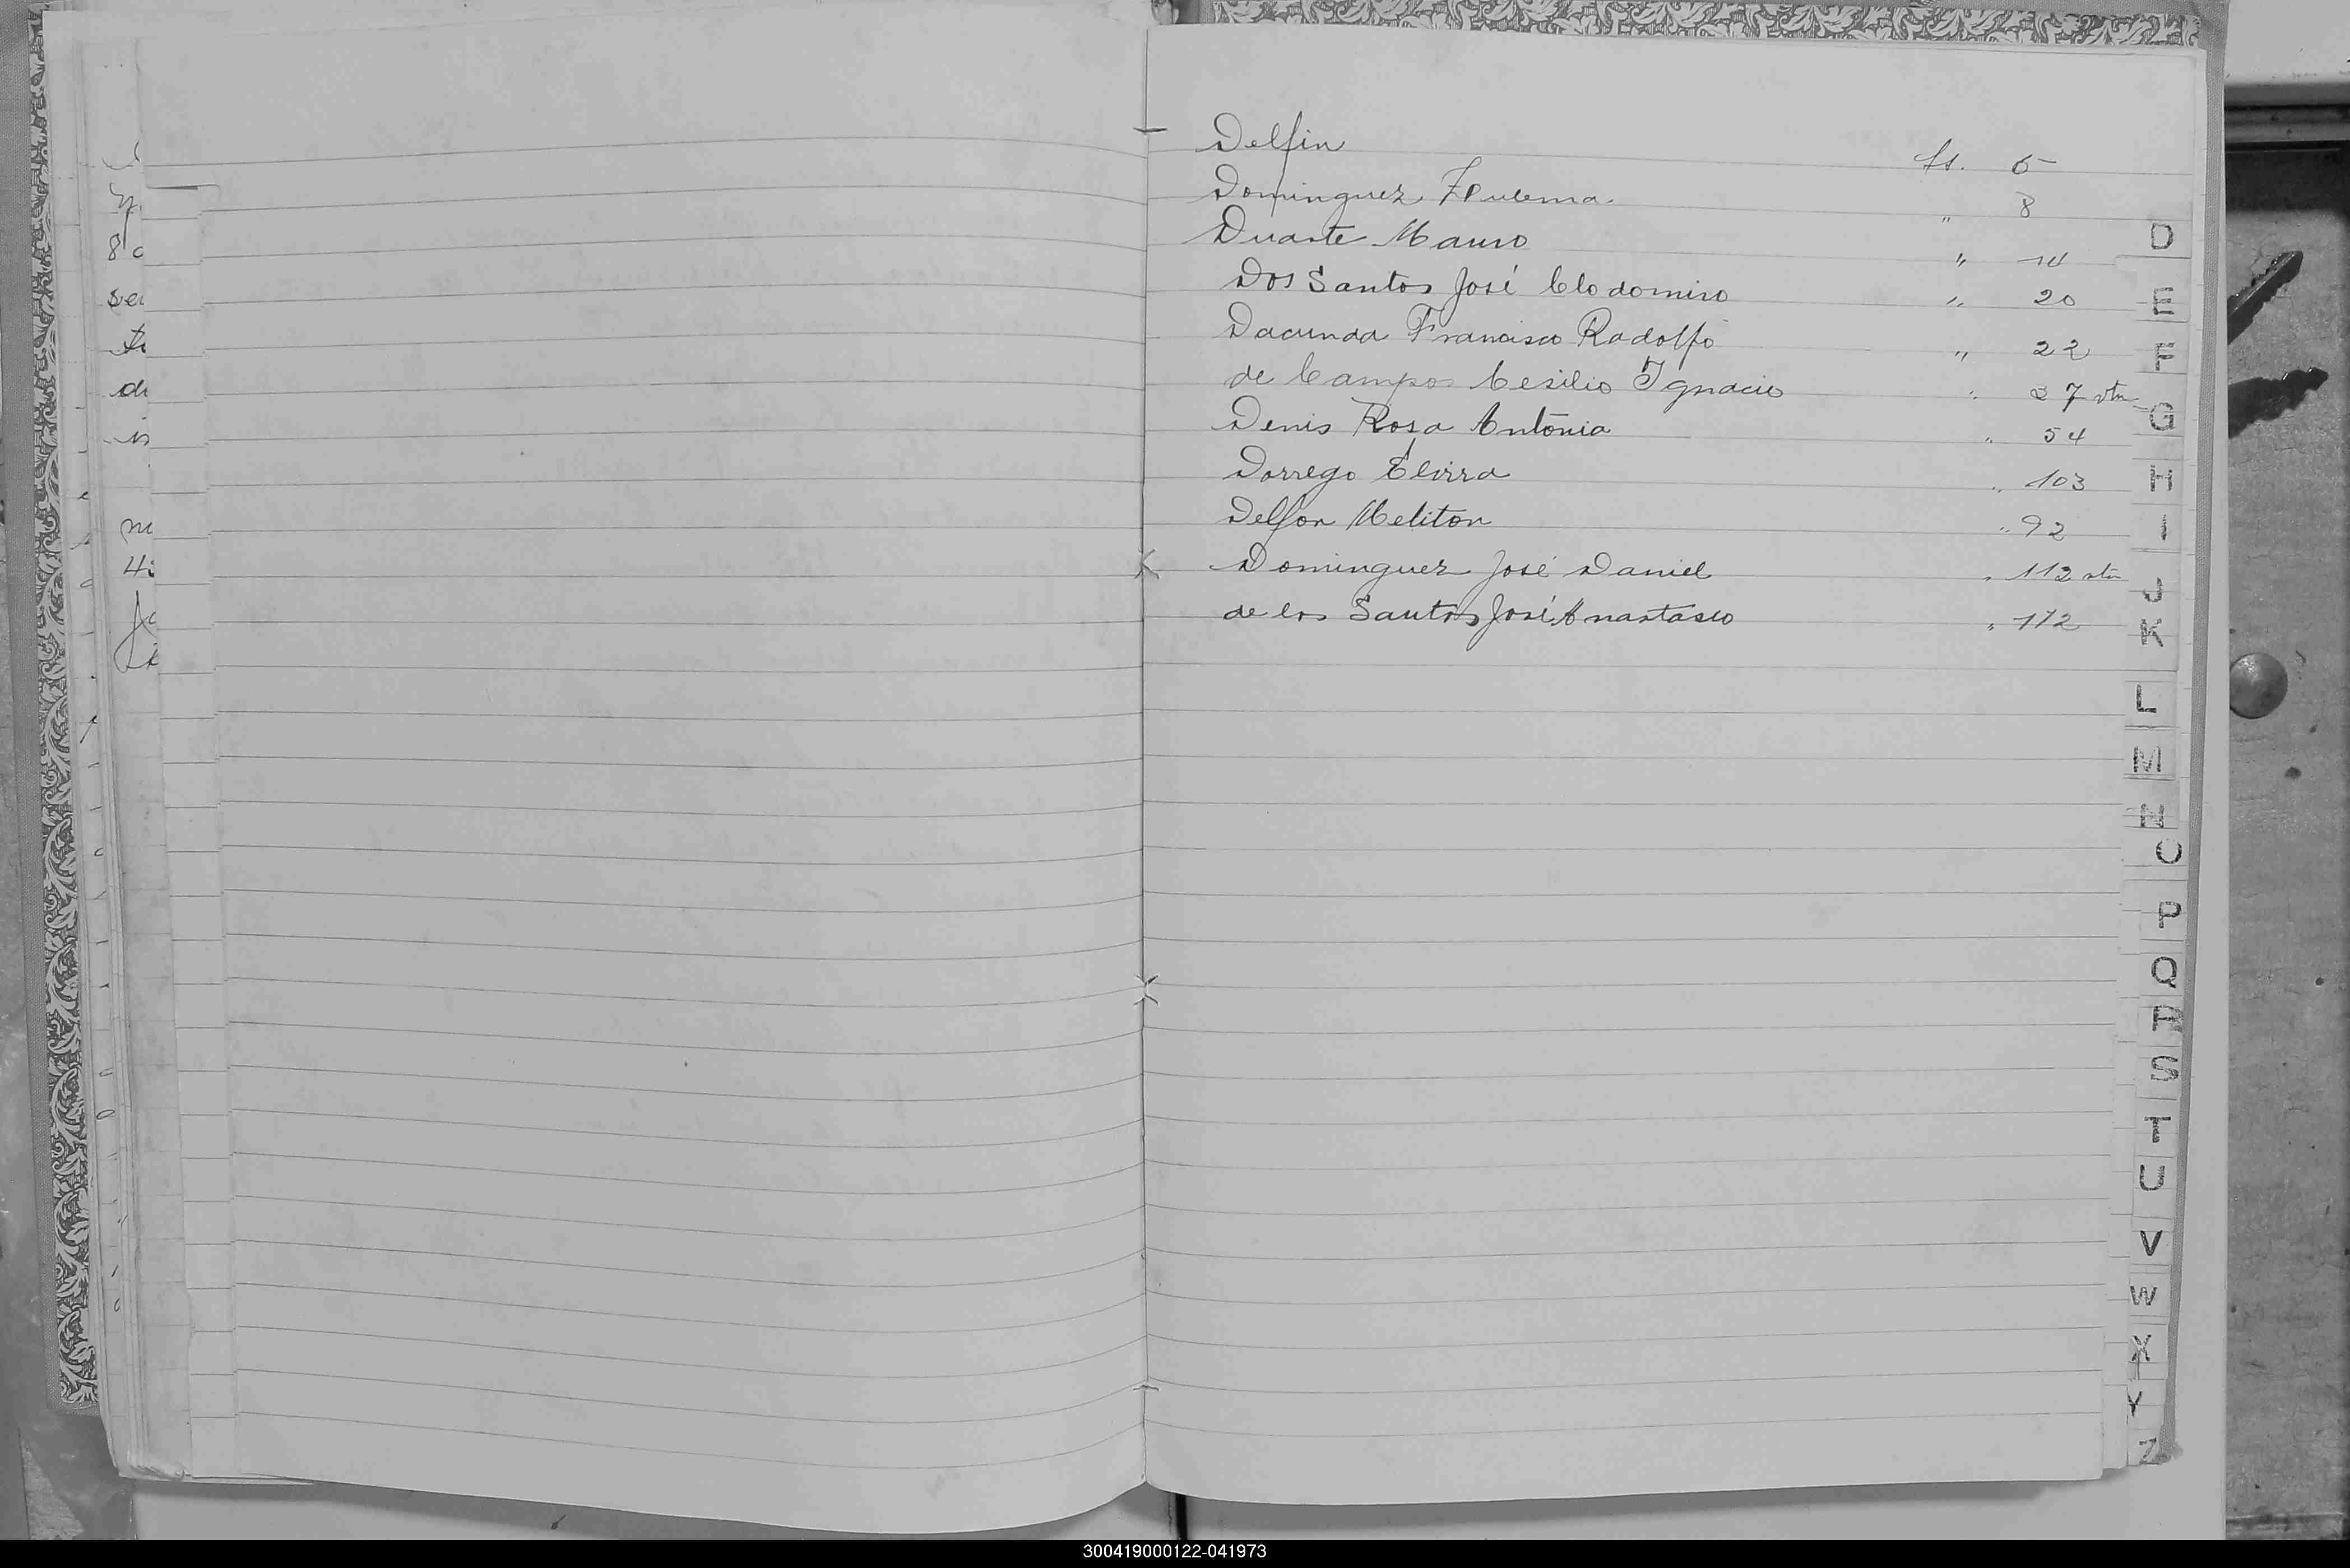 Delfin fs. 6
Dominguez Zulema " 8
Duarte Mauro " 14
Dos Santos José Clodomiro " 20
Dacunda Francisco Rodolfo " 22
de Campos Cesilio Ignacio " 37 vta
Denis Rosa Antonia " 54
Dorrego Elvira " 103
Delfor Meliton " 92
Dominguez José Daniel " 112 vta
de los Santos José Anastasio " 112
D
E
F
G
H
I
J
K
L
M
N
O
P
Q
R
S
T
U
V
W
X
Y
Z
300419000122-041973